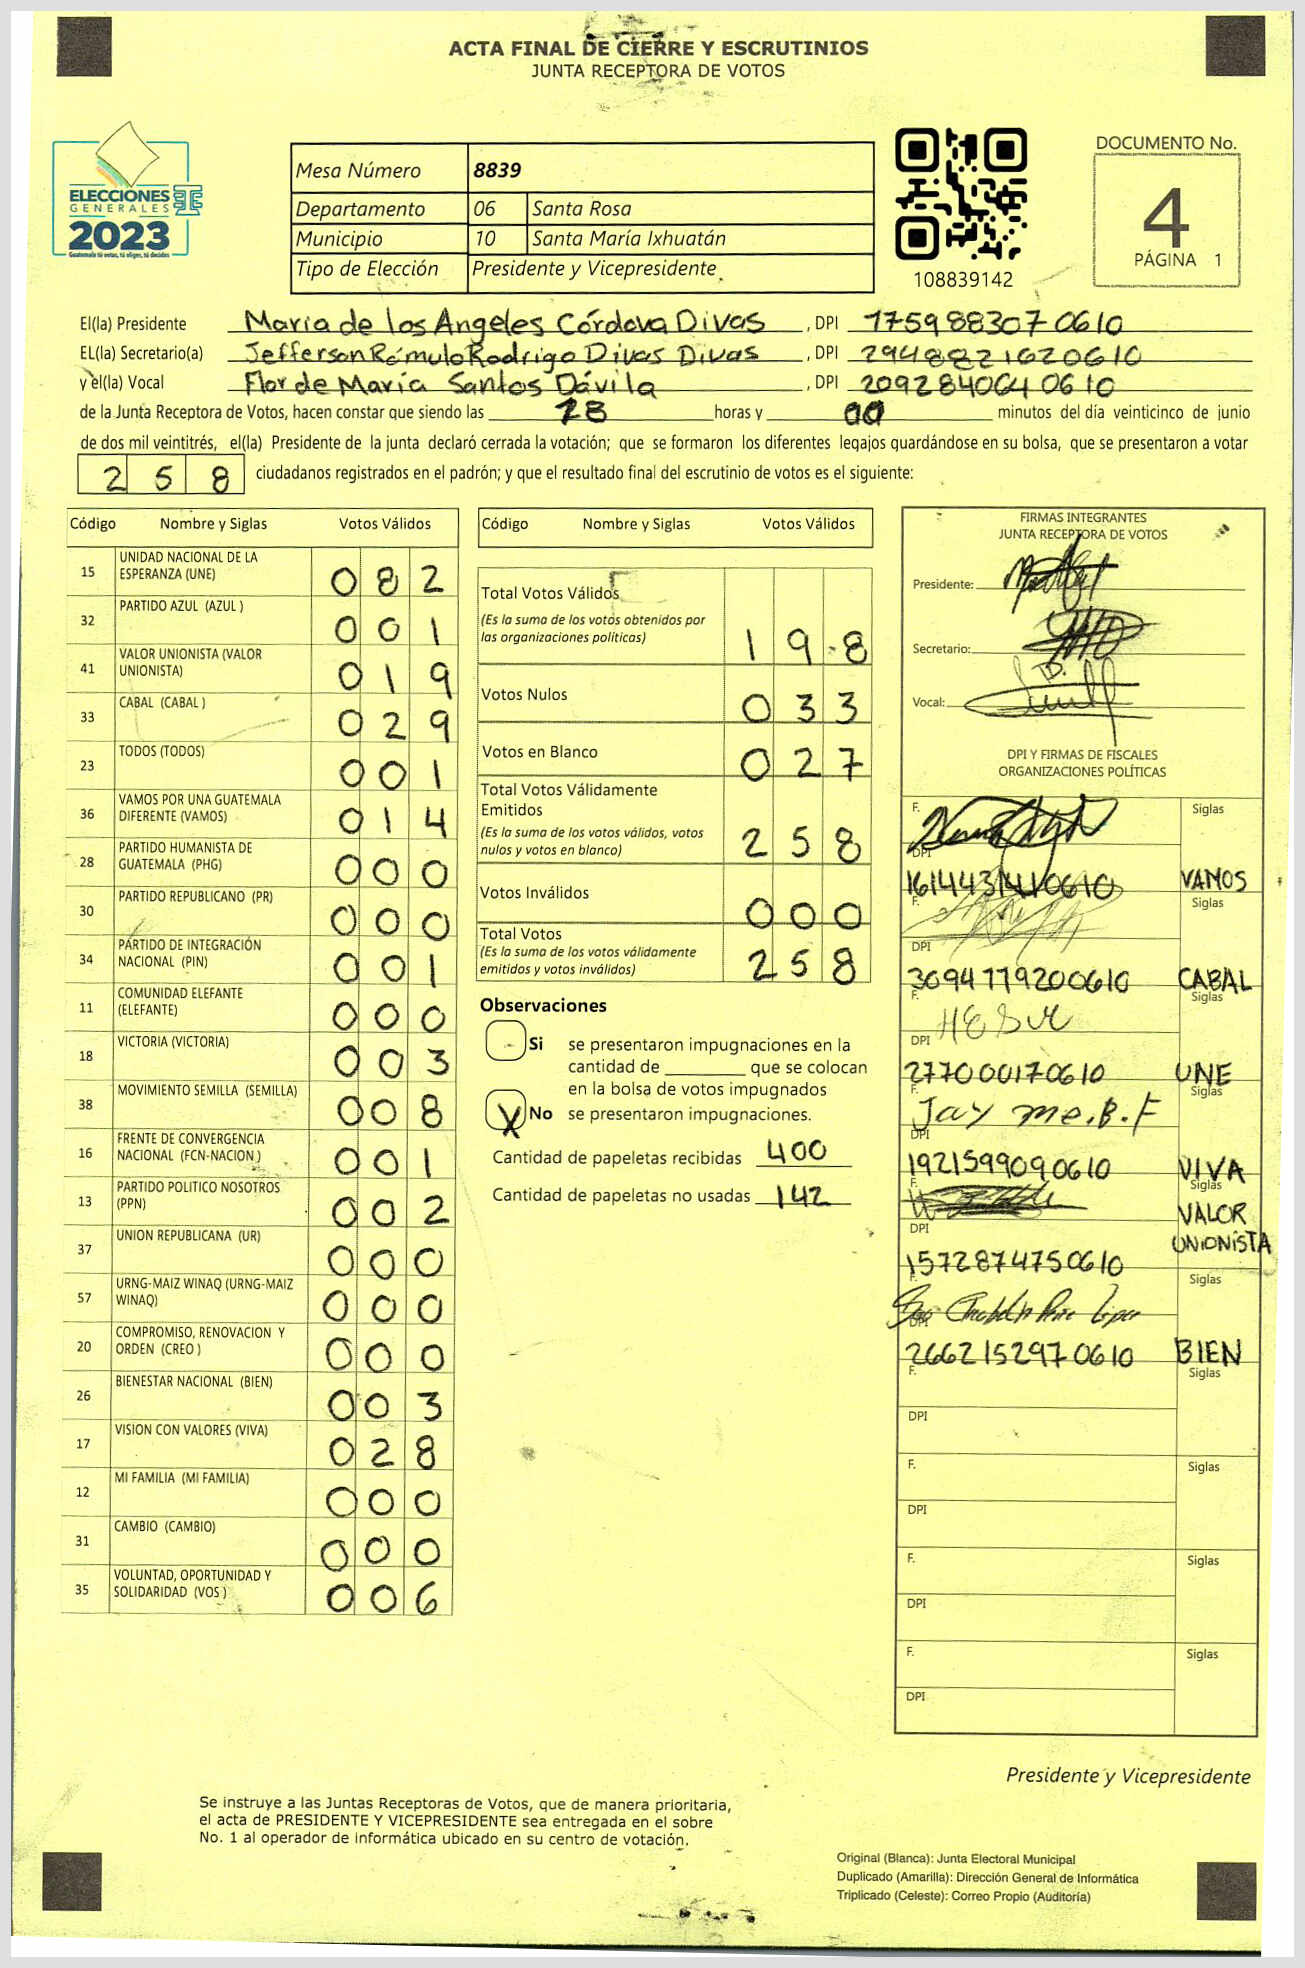 ACTA FINAL DE CIERRE Y ESCRUTINIOS
JUNTA RECEPTORA DE VOTOS
ELECCIONES
GENERALES
2023
Guatemala tú votas, tú eliges, tú decides
Mesa Número 8839
Departamento 06 Santa Rosa
Municipio 10 Santa María Ixhuatán
Tipo de Elección Presidente y Vicepresidente
108839142
DOCUMENTO No.
4
PÁGINA 1
El(la) Presidente María de los Angeles Córdova Divas , DPI 1759883070610
EL(la) Secretario(a) Jefferson Rómulo Rodrigo Divas Divas , DPI 2948821620610
y el(la) Vocal Flor de María Santos Dávila , DPI 2092840640610
de la Junta Receptora de Votos, hacen constar que siendo las 18 horas y 00 minutos del día veinticinco de junio
de dos mil veintitrés, el(la) Presidente de la junta declaró cerrada la votación; que se formaron los diferentes legajos guardándose en su bolsa, que se presentaron a votar
258 ciudadanos registrados en el padrón; y que el resultado final del escrutinio de votos es el siguiente:
Código Nombre y Siglas Votos Válidos
15 UNIDAD NACIONAL DE LA ESPERANZA (UNE) 082
32 PARTIDO AZUL (AZUL ) 001
41 VALOR UNIONISTA (VALOR UNIONISTA) 019
33 CABAL (CABAL ) 029
23 TODOS (TODOS) 001
36 VAMOS POR UNA GUATEMALA DIFERENTE (VAMOS) 014
28 PARTIDO HUMANISTA DE GUATEMALA (PHG) 000
30 PARTIDO REPUBLICANO (PR) 000
34 PARTIDO DE INTEGRACIÓN NACIONAL (PIN) 001
11 COMUNIDAD ELEFANTE (ELEFANTE) 000
18 VICTORIA (VICTORIA) 003
38 MOVIMIENTO SEMILLA (SEMILLA) 008
16 FRENTE DE CONVERGENCIA NACIONAL (FCN-NACION ) 001
13 PARTIDO POLITICO NOSOTROS (PPN) 002
37 UNION REPUBLICANA (UR) 000
57 URNG-MAIZ WINAQ (URNG-MAIZ WINAQ) 000
20 COMPROMISO, RENOVACION Y ORDEN (CREO ) 000
26 BIENESTAR NACIONAL (BIEN) 003
17 VISION CON VALORES (VIVA) 028
12 MI FAMILIA (MI FAMILIA) 000
31 CAMBIO (CAMBIO) 000
35 VOLUNTAD, OPORTUNIDAD Y SOLIDARIDAD (VOS ) 006
Código Nombre y Siglas Votos Válidos
Total Votos Válidos
(Es la suma de los votos obtenidos por
las organizaciones políticas) 198
Votos Nulos 033
Votos en Blanco 027
Total Votos Válidamente
Emitidos
(Es la suma de los votos válidos, votos
nulos y votos en blanco) 258
Votos Inválidos 000
Total Votos
(Es la suma de los votos válidamente
emitidos y votos inválidos) 258
Observaciones
Si se presentaron impugnaciones en la
cantidad de ________ que se colocan
en la bolsa de votos impugnados
X No se presentaron impugnaciones.
Cantidad de papeletas recibidas 400
Cantidad de papeletas no usadas 142
FIRMAS INTEGRANTES
JUNTA RECEPTORA DE VOTOS
Presidente:
Secretario:
Vocal:
DPI Y FIRMAS DE FISCALES
ORGANIZACIONES POLÍTICAS
F. Siglas
DPI
1614431410610 VAMOS
F. Siglas
DPI
3094779200610 CABAL
F. Siglas
DPI
277000170610 UNE
F. Jay me.B.F Siglas
DPI
1921599090610 VIVA
F. Siglas
DPI VALOR
UNIONISTA
1572874750610
F. Siglas
DPI
2662152970610 BIEN
F. Siglas
DPI
F. Siglas
DPI
F. Siglas
DPI
F. Siglas
DPI
Presidente y Vicepresidente
Se instruye a las Juntas Receptoras de Votos, que de manera prioritaria,
el acta de PRESIDENTE Y VICEPRESIDENTE sea entregada en el sobre
No. 1 al operador de informática ubicado en su centro de votación.
Original (Blanca): Junta Electoral Municipal
Duplicado (Amarilla): Dirección General de Informática
Triplicado (Celeste): Correo Propio (Auditoría)